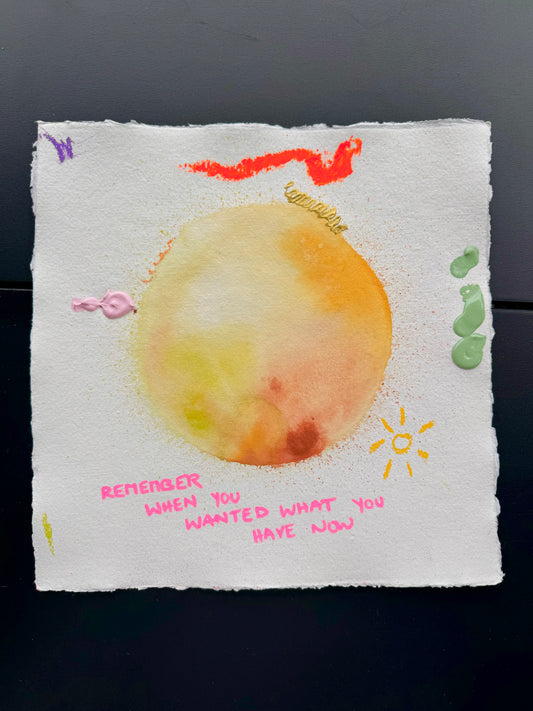 REMEMBER
WHEN YOU
WANTED WHAT YOU
HAVE NOW